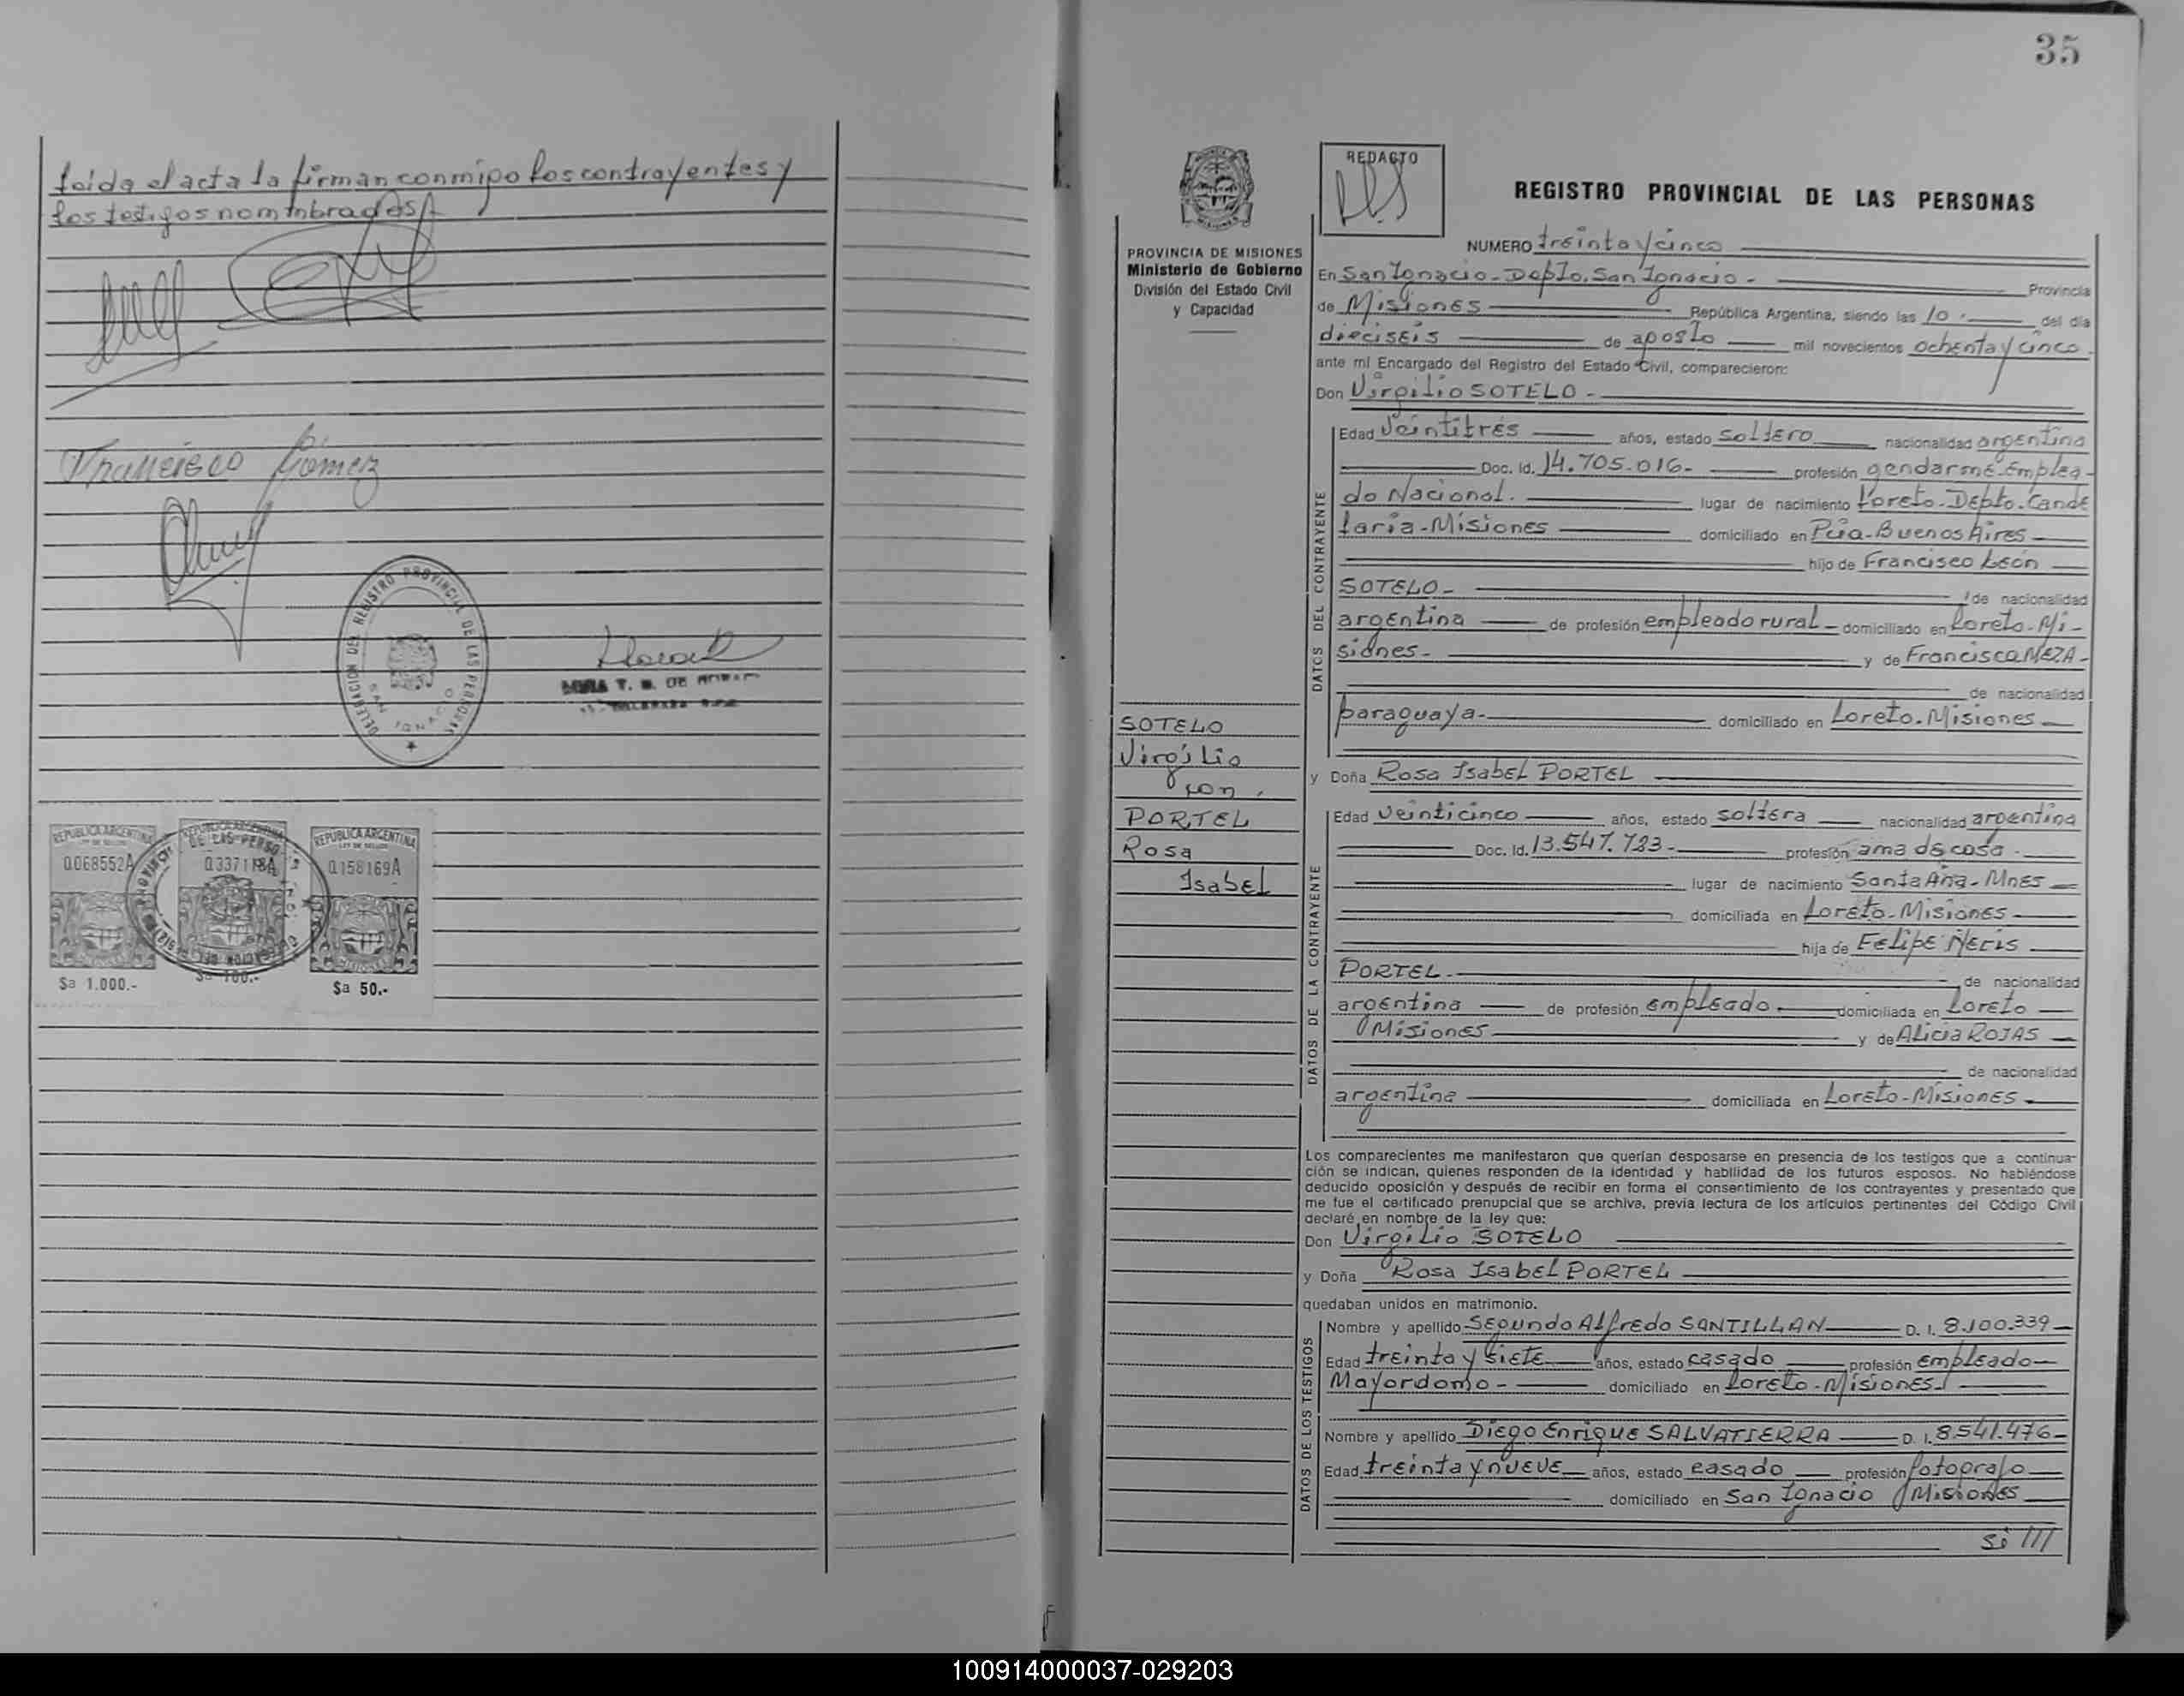 leida el acta la firman conmigo los contrayentes y
los testigos nombrados
Francisco Gómez
DELEGACION DEL REGISTRO PROVINCIAL DE LAS PERSONAS
SAN IGNACIO
REPUBLICA ARGENTINA
0.068552A
$a 1.000.-
REPUBLICA ARGENTINA
0.337118A
$a 100.-
REPUBLICA ARGENTINA
LEY DE SELLOS
0.158169A
$a 50.-
35
REDACTO
REGISTRO PROVINCIAL DE LAS PERSONAS
PROVINCIA DE MISIONES
Ministerio de Gobierno
División del Estado Civil
y Capacidad
SOTELO
Virgilio
con
PORTEL
Rosa
Isabel
NUMERO treinta y cinco
En San Ignacio - Depto. San Ignacio - Provincia
de Misiones República Argentina, siendo las 10. del día
dieciséis de agosto mil novecientos ochenta y cinco
ante mí Encargado del Registro del Estado Civil, comparecieron:
Don Virgilio SOTELO -
DATOS DEL CONTRAYENTE
Edad Veintitrés años, estado soltero nacionalidad argentina
Doc. Id. 14.705.016- profesión gendarme-Emplea-
do Nacional. lugar de nacimiento Loreto-Depto. Cande
laria-Misiones domiciliado en Pcia-Buenos Aires
hijo de Francisco León
SOTELO- de nacionalidad
argentina de profesión empleado rural - domiciliado en Loreto-Mi-
siones- y de Francisca MEZA-
de nacionalidad
paraguaya- domiciliado en Loreto-Misiones
y Doña Rosa Isabel PORTEL
DATOS DE LA CONTRAYENTE
Edad Veinticinco años, estado soltera nacionalidad argentina
Doc. Id. 13.547.723- profesión ama de casa -
lugar de nacimiento Santa Ana-Mnes
domiciliada en Loreto-Misiones
hija de Felipe Neris
PORTEL- de nacionalidad
argentina de profesión empleado- domiciliada en Loreto
Misiones y de Alicia ROJAS
de nacionalidad
argentina domiciliada en Loreto-Misiones
Los comparecientes me manifestaron que querían desposarse en presencia de los testigos que a continua-
ción se indican, quienes responden de la identidad y habilidad de los futuros esposos. No habiéndose
deducido oposición y después de recibir en forma el consentimiento de los contrayentes y presentado que
me fue el certificado prenupcial que se archiva, previa lectura de los artículos pertinentes del Código Civil
declaré en nombre de la ley que:
Don Virgilio SOTELO
y Doña Rosa Isabel PORTEL
quedaban unidos en matrimonio.
DATOS DE LOS TESTIGOS
Nombre y apellido Segundo Alfredo SANTILLAN D. I. 8.100.339
Edad treinta y siete años, estado casado profesión empleado
Mayordomo- domiciliado en Loreto-Misiones
Nombre y apellido Diego Enrique SALVATIERRA D. I. 8.541.476-
Edad treinta y nueve años, estado casado profesión fotografo
domiciliado en San Ignacio Misiones
si ///
100914000037-029203